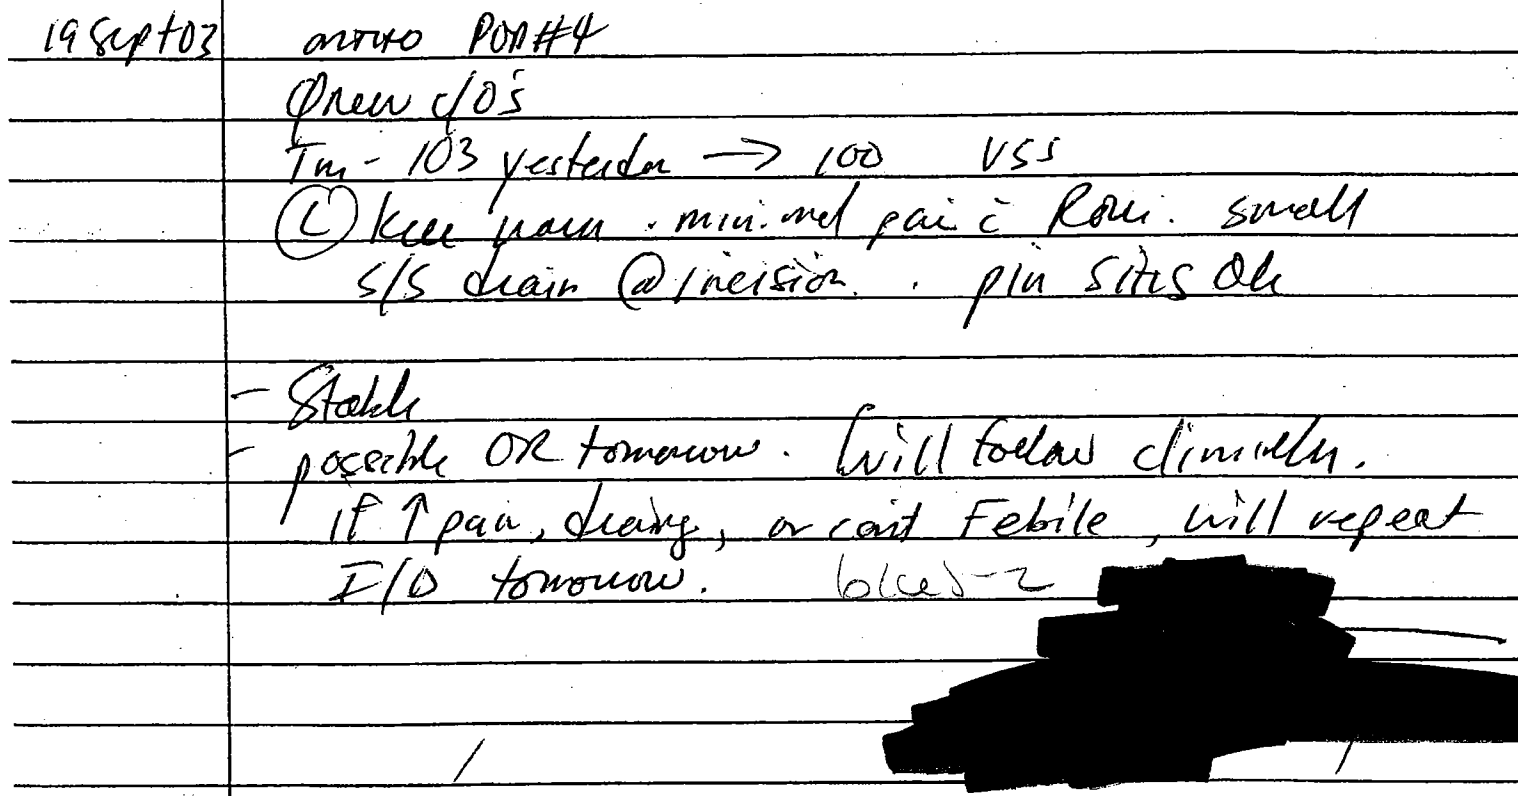 19 Sept 03 ortho POD#4
Ø new c/o's
Tm - 103 yesterday → 100 VSS
Ⓛ knee . minimal pain c̄ ROM. small
s/s drain @ incision. . pin sites ok
- Stable
- possible OR tomorrow. Will follow clinically.
if ↑ pain, draing, or cont Febile, will repeat
I/D tomorrow.